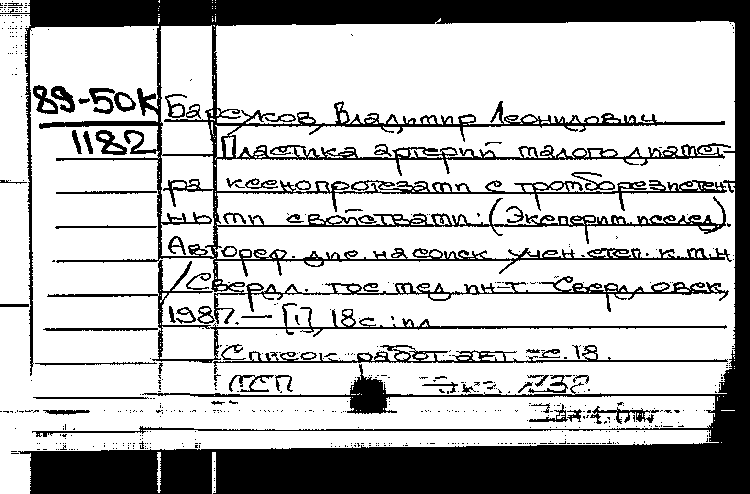 89-50К Барсуков, Владимир Леонидович
1182 Пластика артерий малого диамет-
ра ксенопротезами с тромборезистент
ными свойствами: (Эксперим. исслед)
Автореф. дис. на соиск. учен. степ. к.м.н
/Свердл. гос. мед. ин-т. - Свердловск,
1987. - [1], 18 с.: ил
Список работ авт. с. 18.